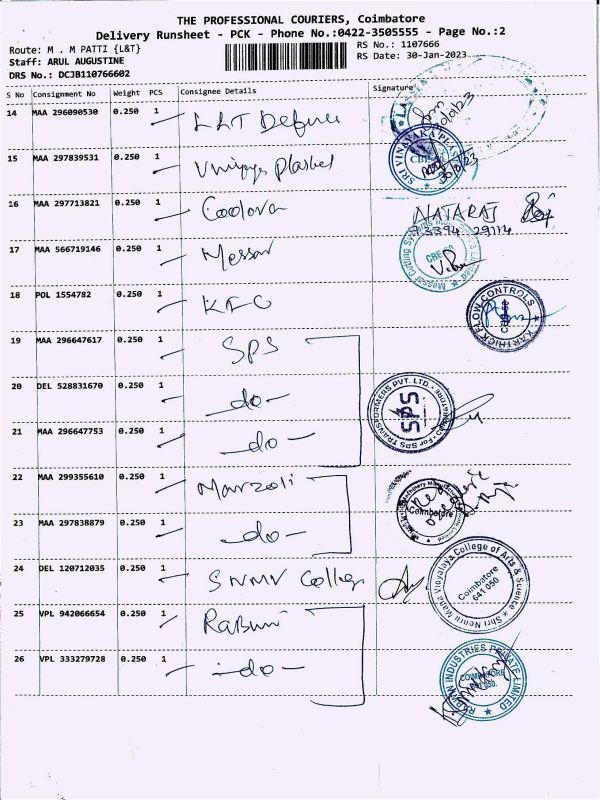 THE PROFESSIONAL COURIERS, Coimbatore
Delivery Runsheet - PCK - Phone No.:0422-3505555 - Page No.:2
Route: M . M PATTI {L&T}
RS No.: 1107666
Staff: ARUL AUGUSTINE
RS Date: 30-Jan-2023
DRS No.: DCJB110766602
S No Consignment No Weight PCS Consignee Details Signature
14 MAA 296090530 0.250 1 L&T Defence
15 MAA 297839531 0.250 1 Vinayaga Plastet
SRI VINAYAKA PLAS
CBE
30/1/23
16 MAA 297713821 0.250 1 Codova NATARAJ
73394 29114
17 MAA 566719146 0.250 1 Messer
CBE
18 POL 1554782 0.250 1 KFC
KARTHICK FLOW CONTROLS
19 MAA 296647617 0.250 1 SPS
20 DEL 528831670 0.250 1 -do-
For SPS TRANSFORMERS PVT. LTD.
SPS
21 MAA 296647753 0.250 1 -do-
22 MAA 299355610 0.250 1 Marzoli
Coimbatore
23 MAA 297838879 0.250 1 -do-
24 DEL 120712035 0.250 1 SNMV College
Shri Nehru Maha Vidyalaya College of Arts & Science
Coimbatore
641 050
25 VPL 942066654 0.250 1 Rabwin
26 VPL 333279728 0.250 1 -do-
RABWIN INDUSTRIES PRIVATE LIMITED
COIMBATORE